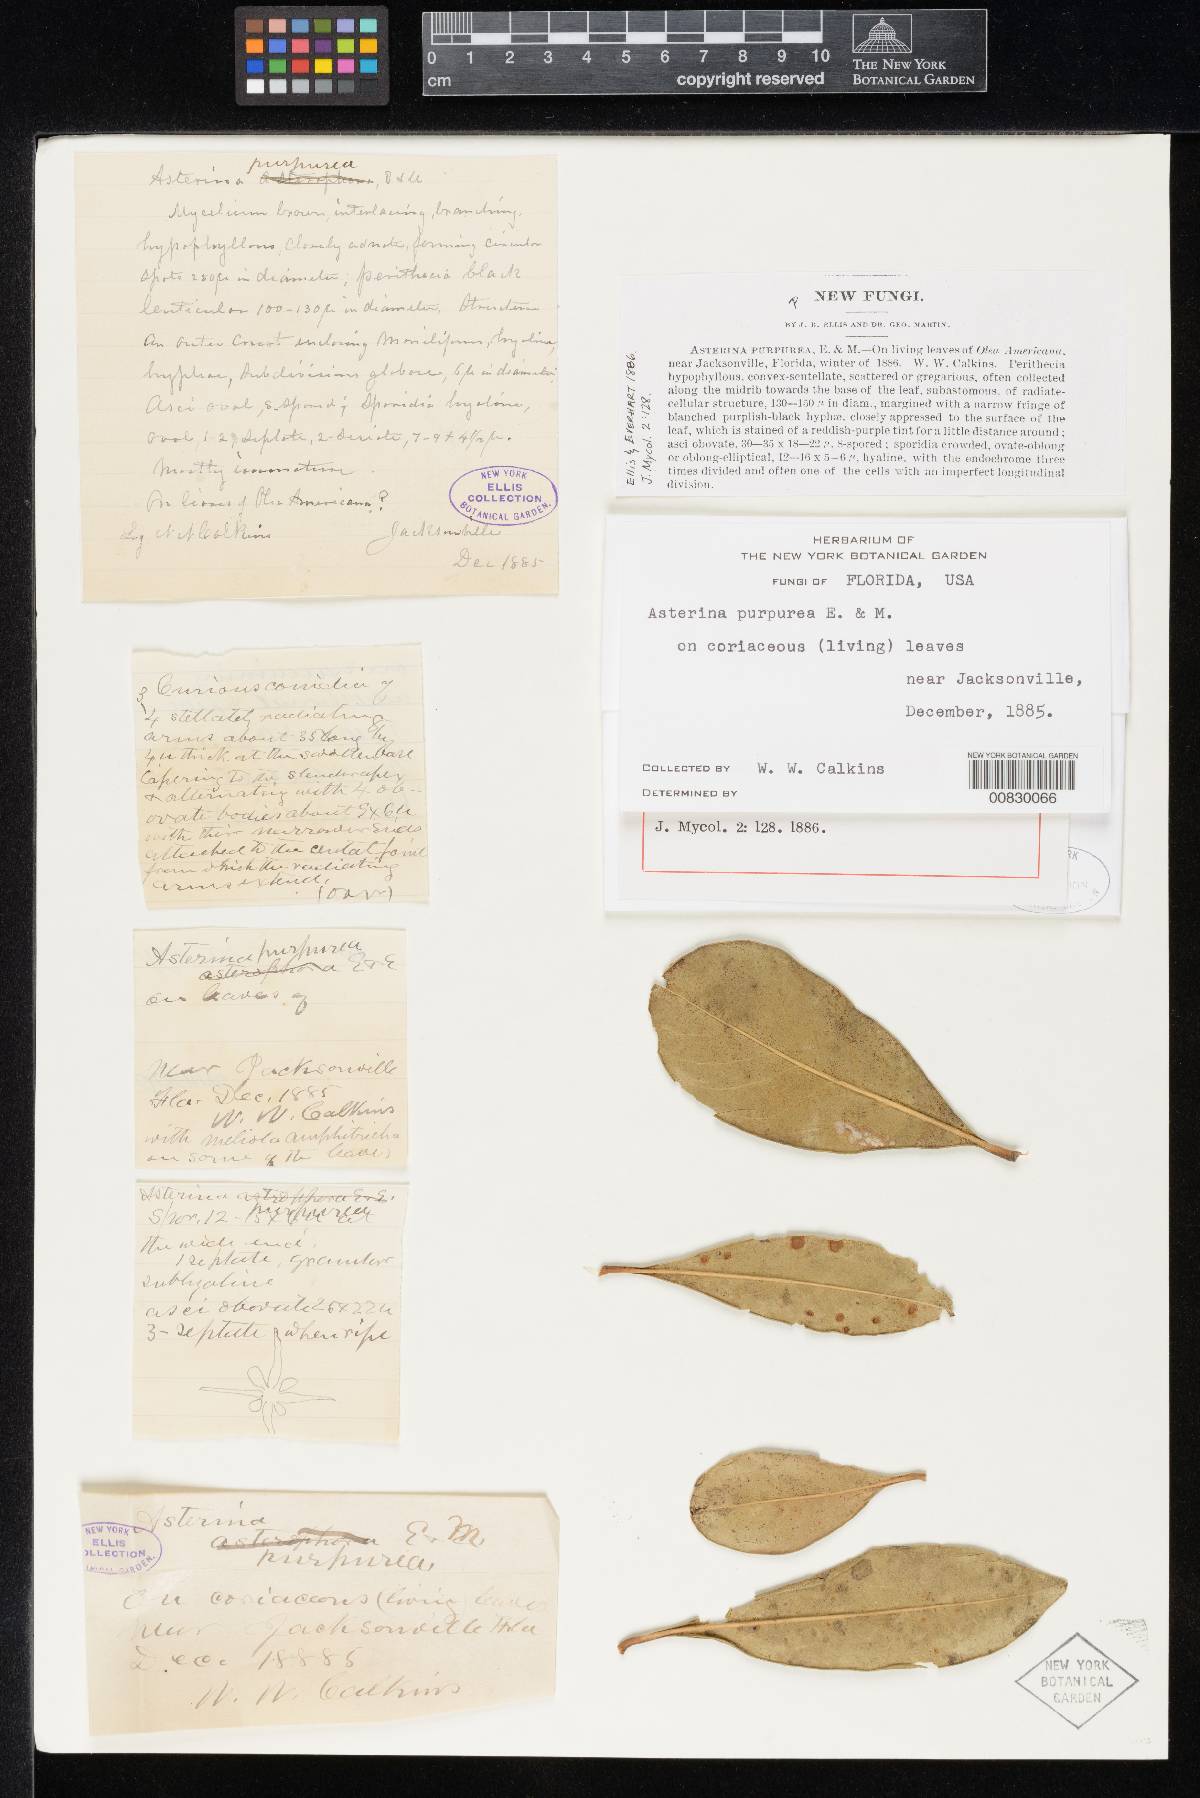 0 1 2 3 4 5 6 7 8 9 10
cm
copyright reserved
THE NEW YORK
BOTANICAL GARDEN
purpurea
Asterina asterophora,
Mycelium brown, interlacing, branching,
hypophyllous, closely adnate, forming circular
spots 250µ in diameter; perithecia black
lenticular 100-130µ in diameter. Structure
an outer coat enclosing moniliform, hyaline,
hyphae, subdivisions globose, 6µ in diameter,
Asci oval, 8-spored; Sporidia hyaline,
oval, 1-2 septate, 2-seriate, 7-9 x
Mostly immature
On leaves of Olea Americana?
Leg W W Calkins
Jacksonville
Dec 1885
NEW YORK
ELLIS
COLLECTION
BOTANICAL GARDEN.
NEW FUNGI.
BY J. B. ELLIS AND DR. GEO. MARTIN.
ASTERINA PURPUREA, E. & M.—On living leaves of Olea Americana,
near Jacksonville, Florida, winter of 1886. W. W. Calkins. Perithecia
hypophyllous, convex-scutellate, scattered or gregarious, often collected
along the midrib towards the base of the leaf, subastomous, of radiate-
cellular structure, 130—150 µ in diam., margined with a narrow fringe of
blanched purplish-black hyphæ, closely appressed to the surface of the
leaf, which is stained of a reddish-purple tint for a little distance around;
asci obovate, 30—35 x 18—22 µ, 8-spored; sporidia crowded, ovate-oblong
or oblong-elliptical, 12—16 x 5—6 µ, hyaline, with the endochrome three
times divided and often one of the cells with an imperfect longitudinal
division.
Ellis & Everhart 1886.
J. Mycol. 2:128.
HERBARIUM OF
THE NEW YORK BOTANICAL GARDEN
FUNGI OF FLORIDA, USA
Asterina purpurea E. & M.
on coriaceous (living) leaves
near Jacksonville,
December, 1885.
COLLECTED BY W. W. Calkins
DETERMINED BY
NEW YORK BOTANICAL GARDEN
00830066
J. Mycol. 2: 128. 1886.
3 Curious conidia of
4 stellately radiating
arms about 35 long by
4µ thick at the swollen base
tapering to the slender apex
& alternating with 4 ob-
ovate bodies about 9x6µ
with their narrower ends
attached to the central point
from which the radiating
arms extend.
Asterina purpurea
asterophora E & E
on leaves of
Near Jacksonville
Fla. Dec. 1885
W. W. Calkins
with Meliola amphitricha
on some of the leaves
Asterina asterophora E & E.
purpurea
Spor. 12-15 x
the wide end.
1 septate, granular
subhyaline
asci obovate 26x22µ
3-septate when ripe
NEW YORK
ELLIS
COLLECTION
BOTANICAL GARDEN.
Asterina
asterophora E & M.
purpurea.
On coriaceous (living) leaves
Near Jacksonville Fla
Dec. 18885
W. W. Calkins
NEW YORK
BOTANICAL
GARDEN